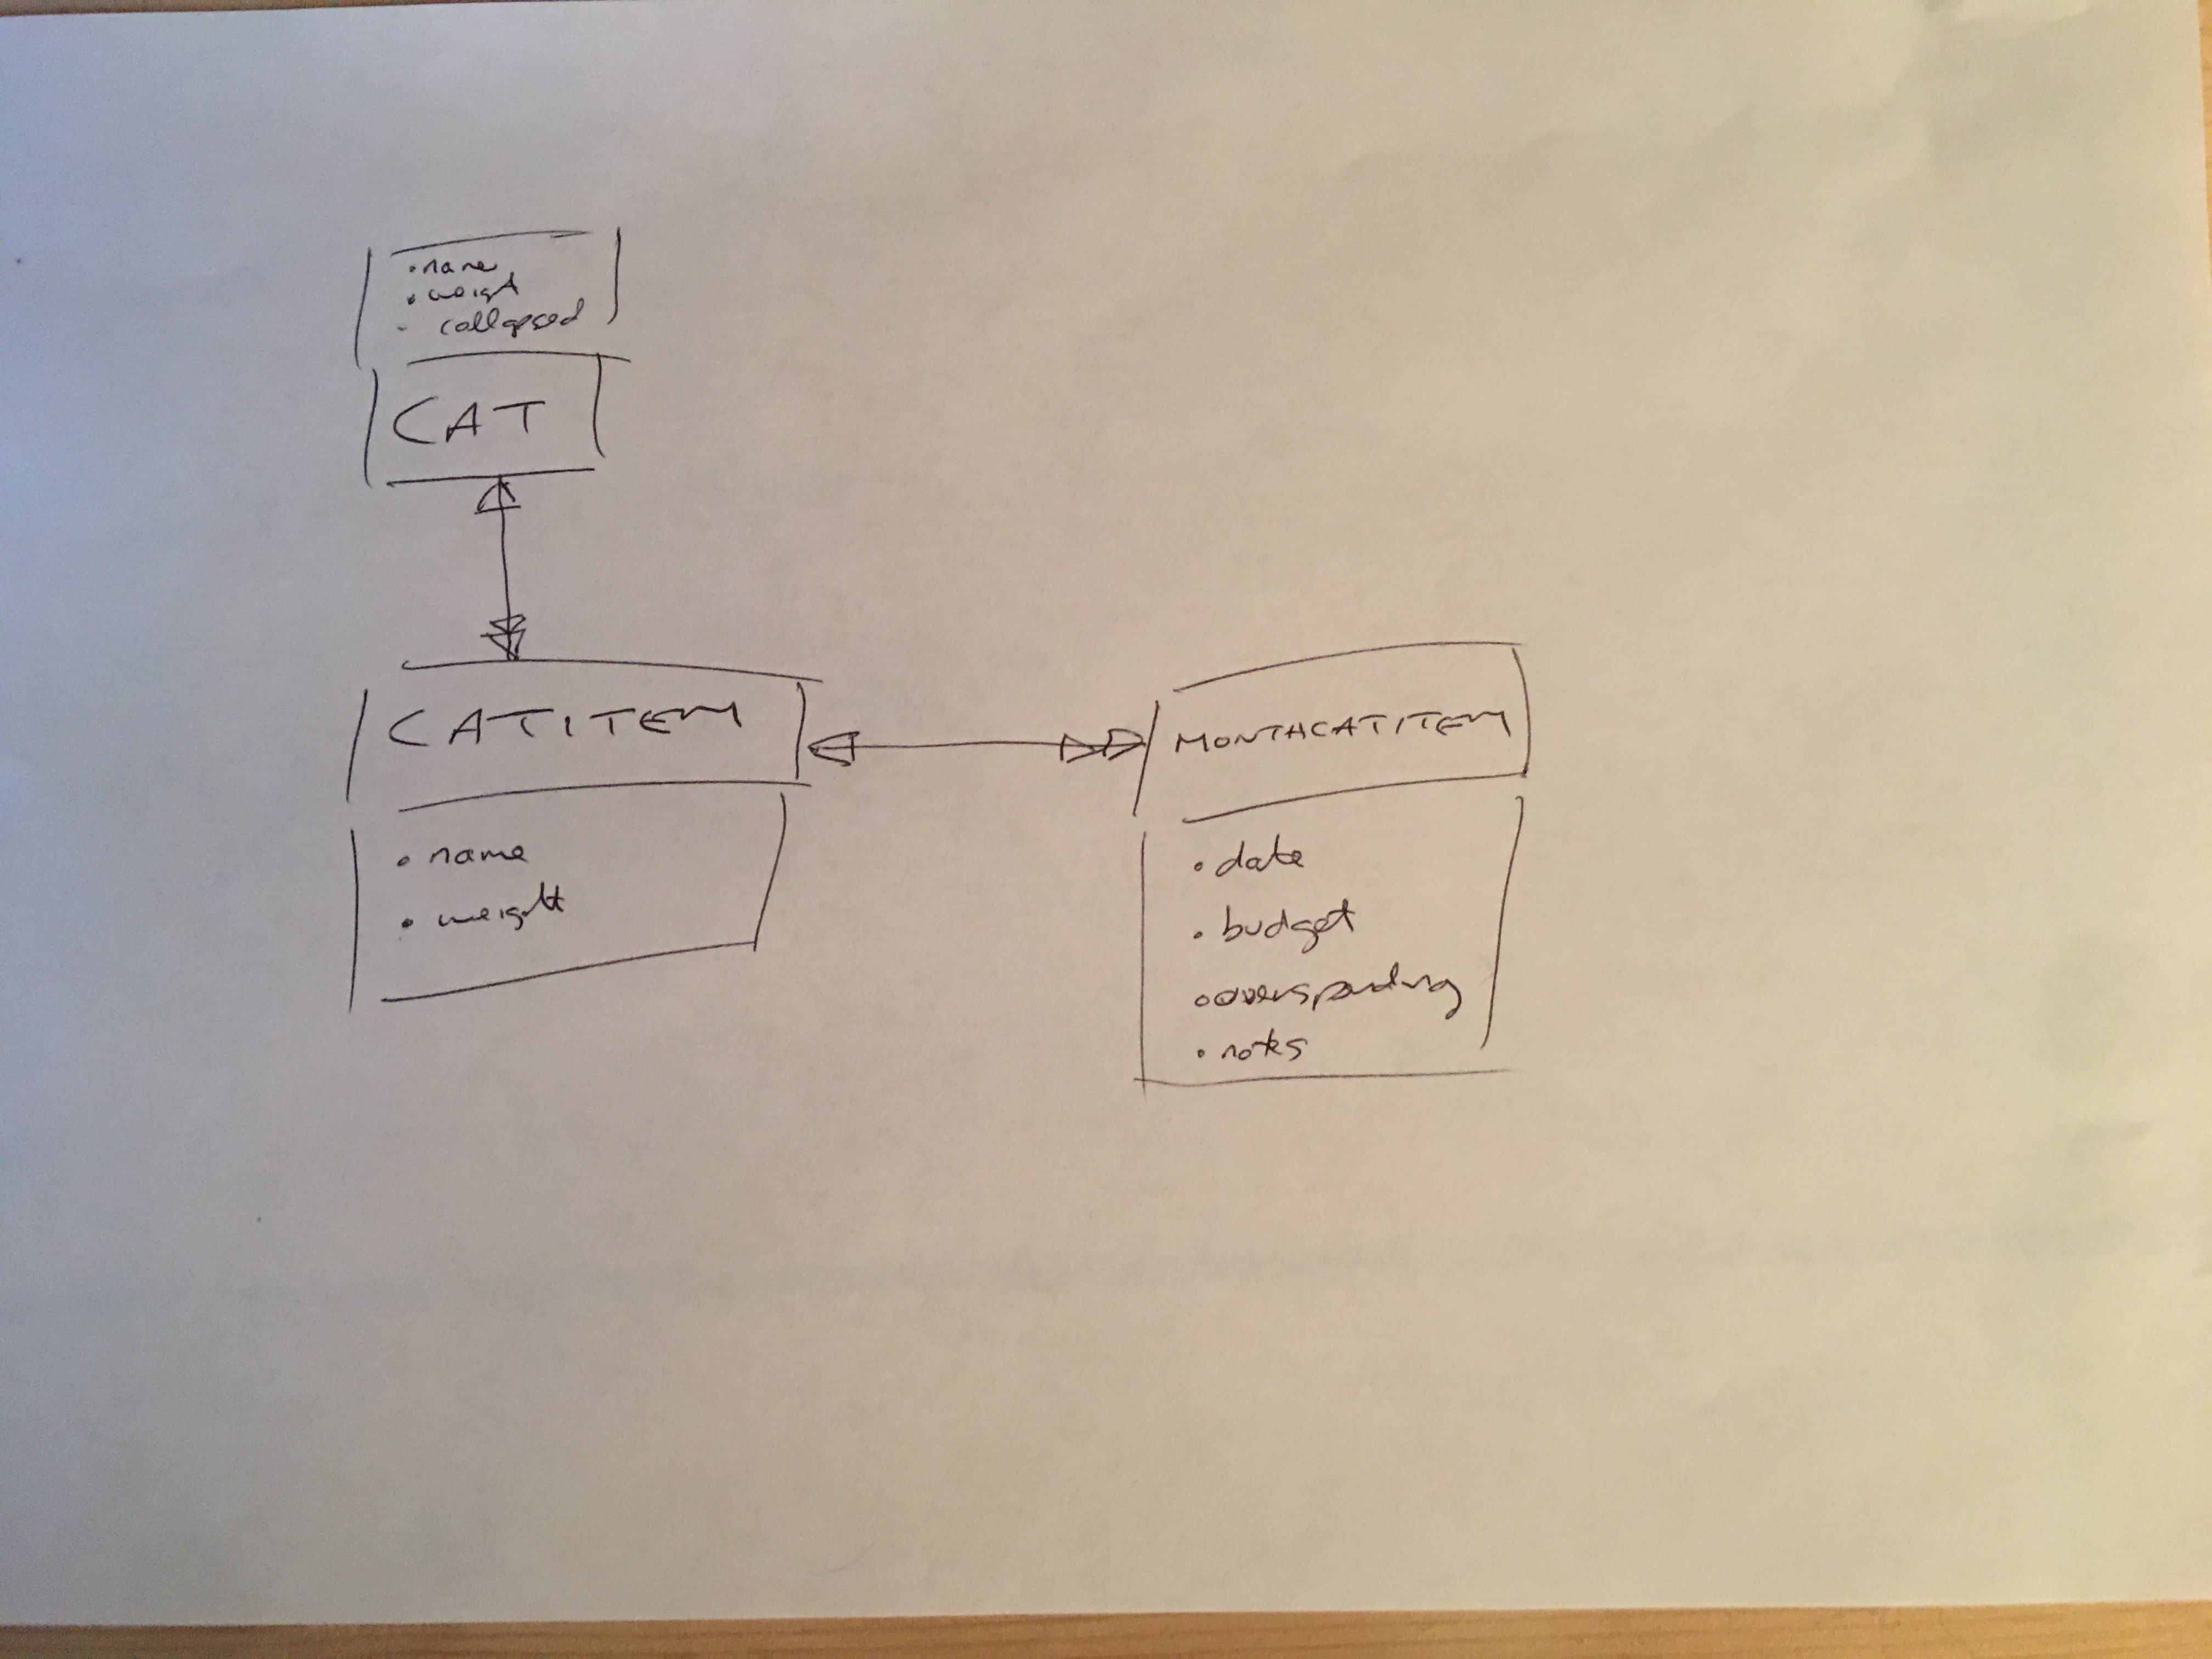 • name
• weight
• collapsed
CAT
CATITEM
• name
• weight
MONTHCATITEM
• date
• budget
• overspending
• notes